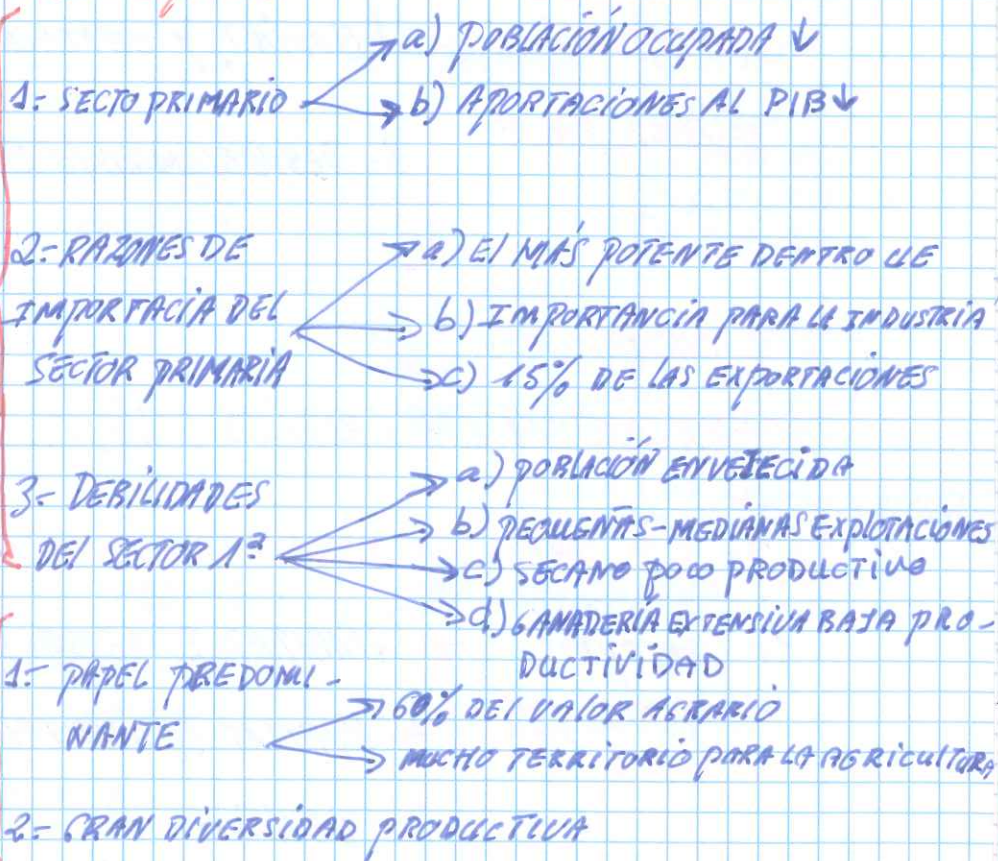 a) POBLACIÓN OCUPADA ↓
1= SECTO PRIMARIO
b) APORTACIONES AL PIB ↓
2= RAZONES DE
IMPORTACIA DEL
SECTOR PRIMARIA
a) El MÁS POTENTE DENTRO UE
b) IMPORTANCIA PARA LA INDUSTRIA
c) 15% DE LAS EXPORTACIONES
3= DEBILIDADES
DEl SECTOR 1ª
a) POBLACIÓN ENVEJECIDA
b) PEQUEÑAS-MEDIANAS EXPLOTACIONES
c) SECANO POCO PRODUCTIVO
d) GANADERÍA EXTENSIVA BAJA PRO-
DUCTIVIDAD
1= PAPEL PREDOMI-
NANTE
60% DEl VALOR AGRARIO
MUCHO TERRITORIO PARA LA AGRICULTURA
2= GRAN DIVERSIDAD PRODUCTIVA